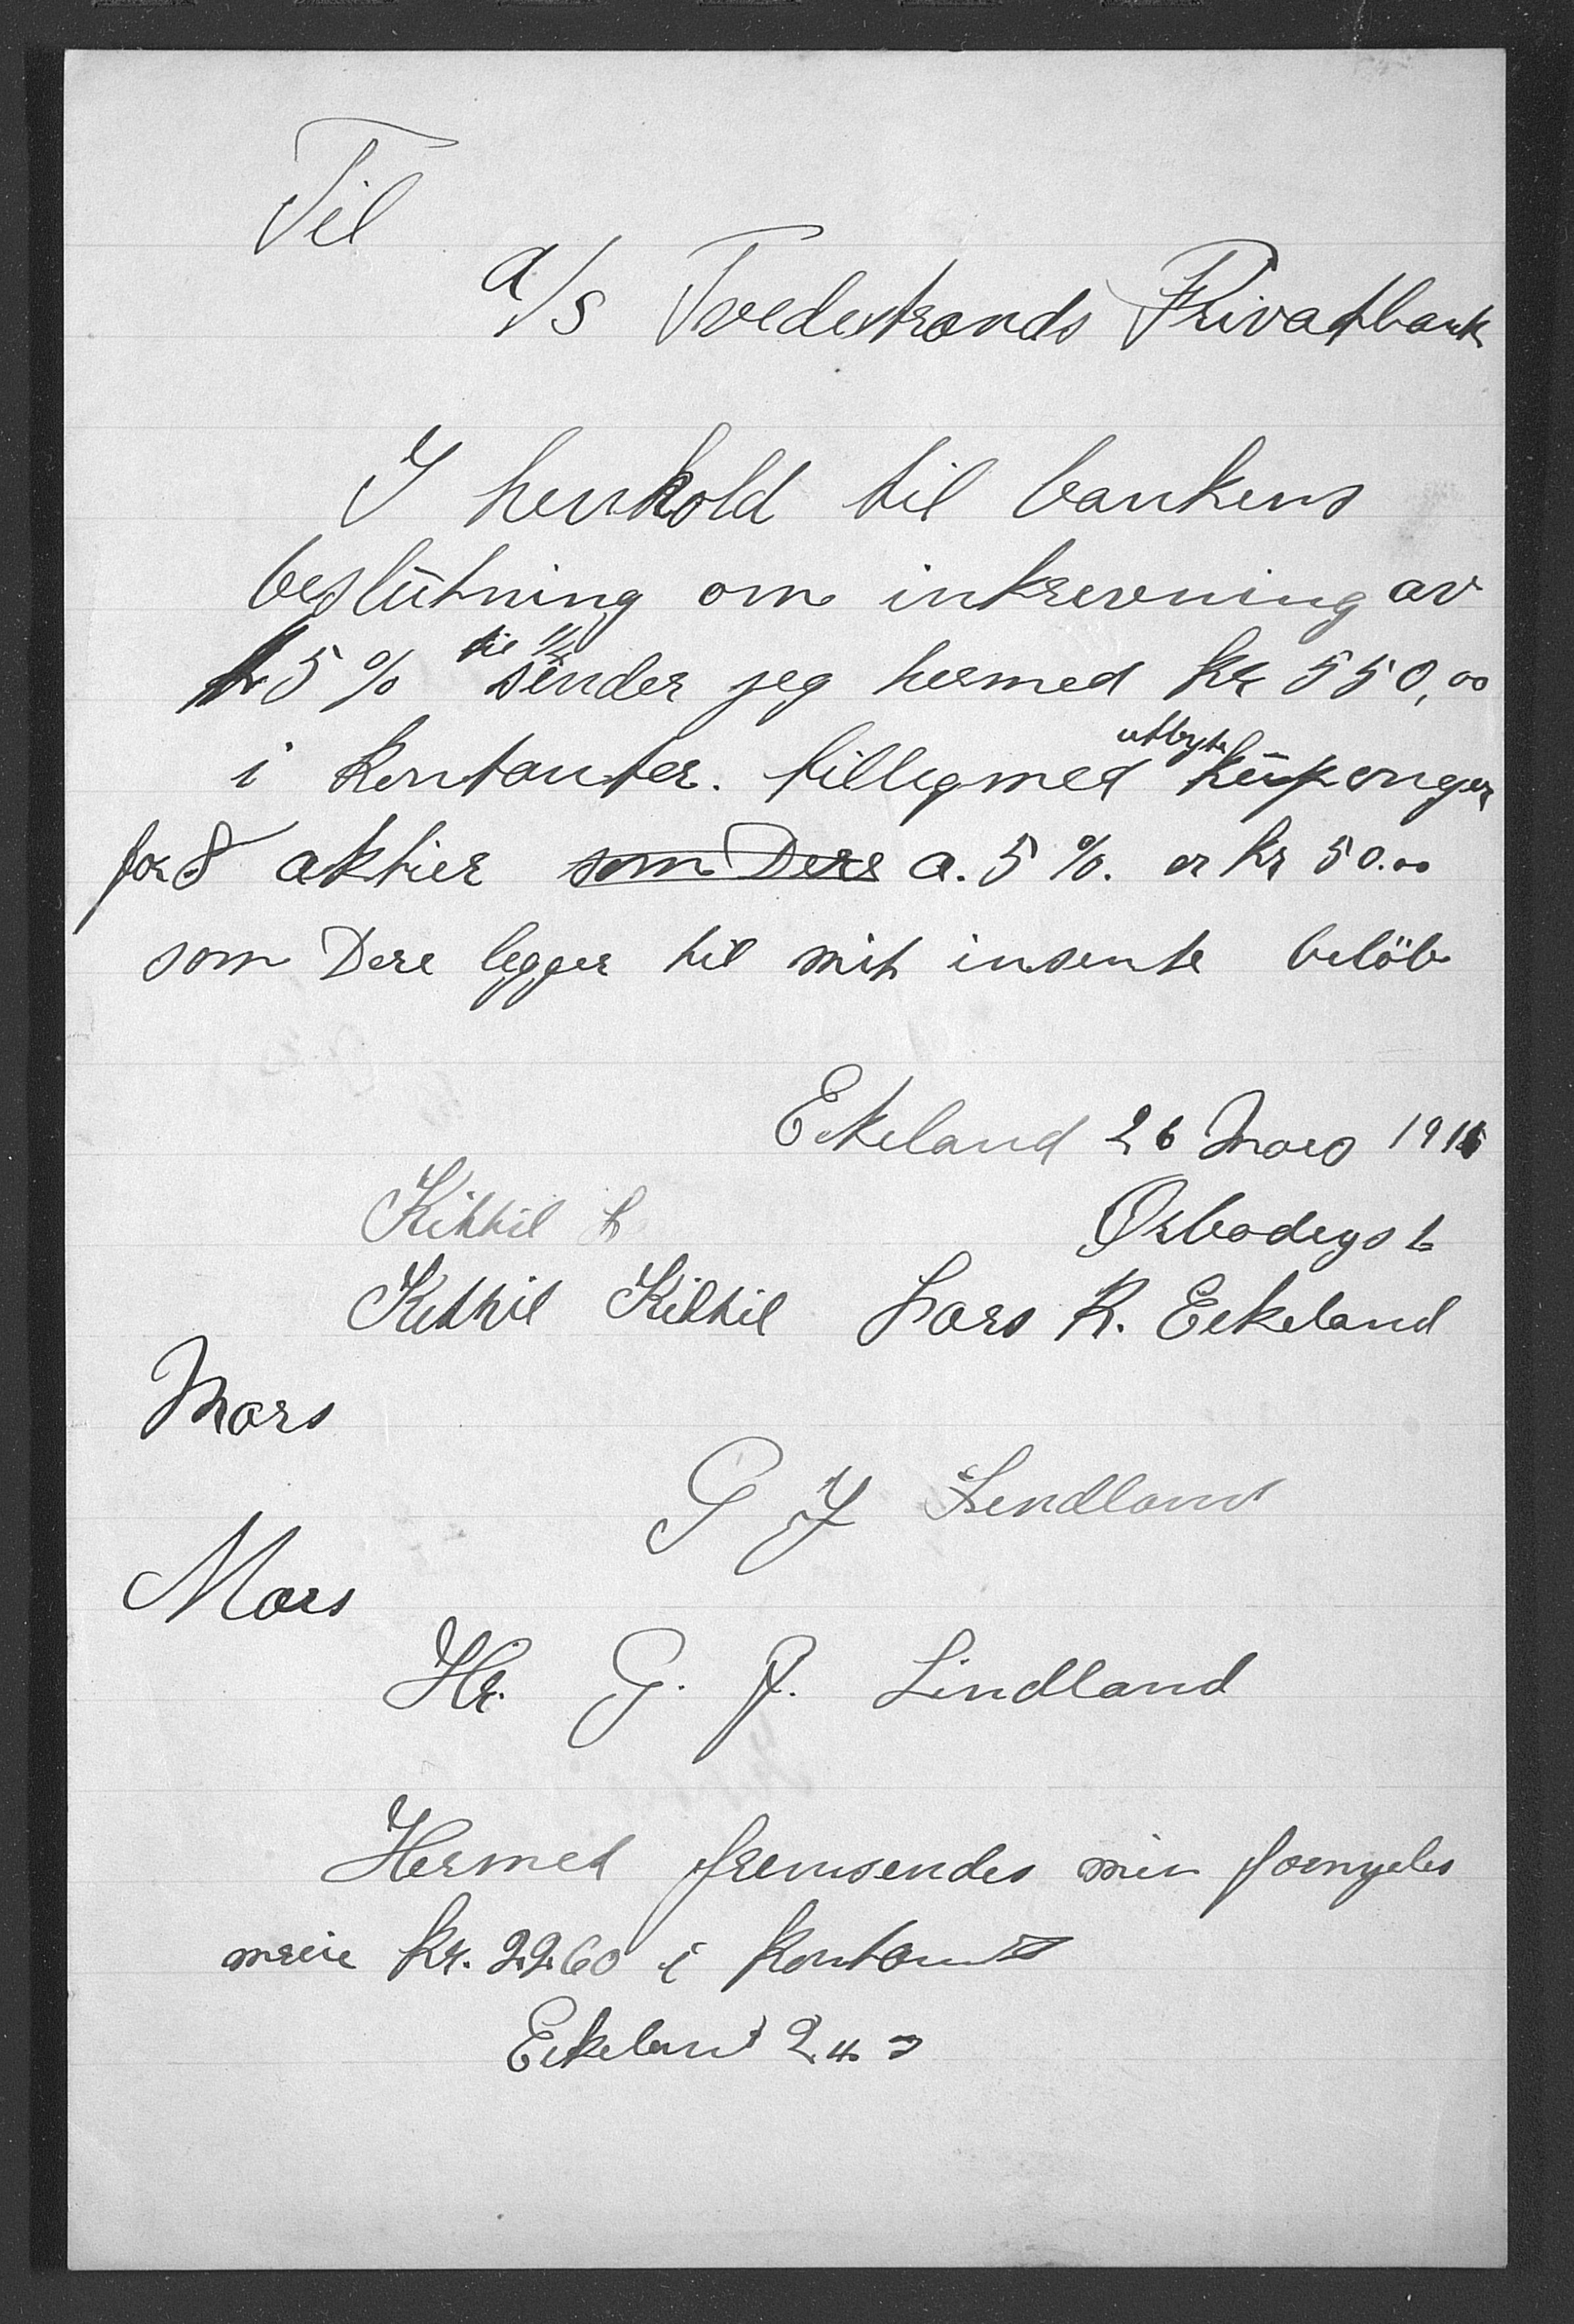 Til
a/s Tvedestrands Privatbank
I henhold til bankens
beslutning om inkrevning av
25% til 1/4 sender jeg hermed kr 550,00
i kontanter. tilligmed utbyte kuponger
for 8 aktier som Dere a. 5%. er kr 50.00
som Dere legger til mit insente beløb
Eikeland 26 Mars 1915
Kittil
Ærbødigst
Kittil Kittil Lars R. Eikeland
Mars
G J Lendland
Mars
Hr. G. J. Lindland
Hermed fremsendes min
kr. 2260 i kontant
Eikeland 24